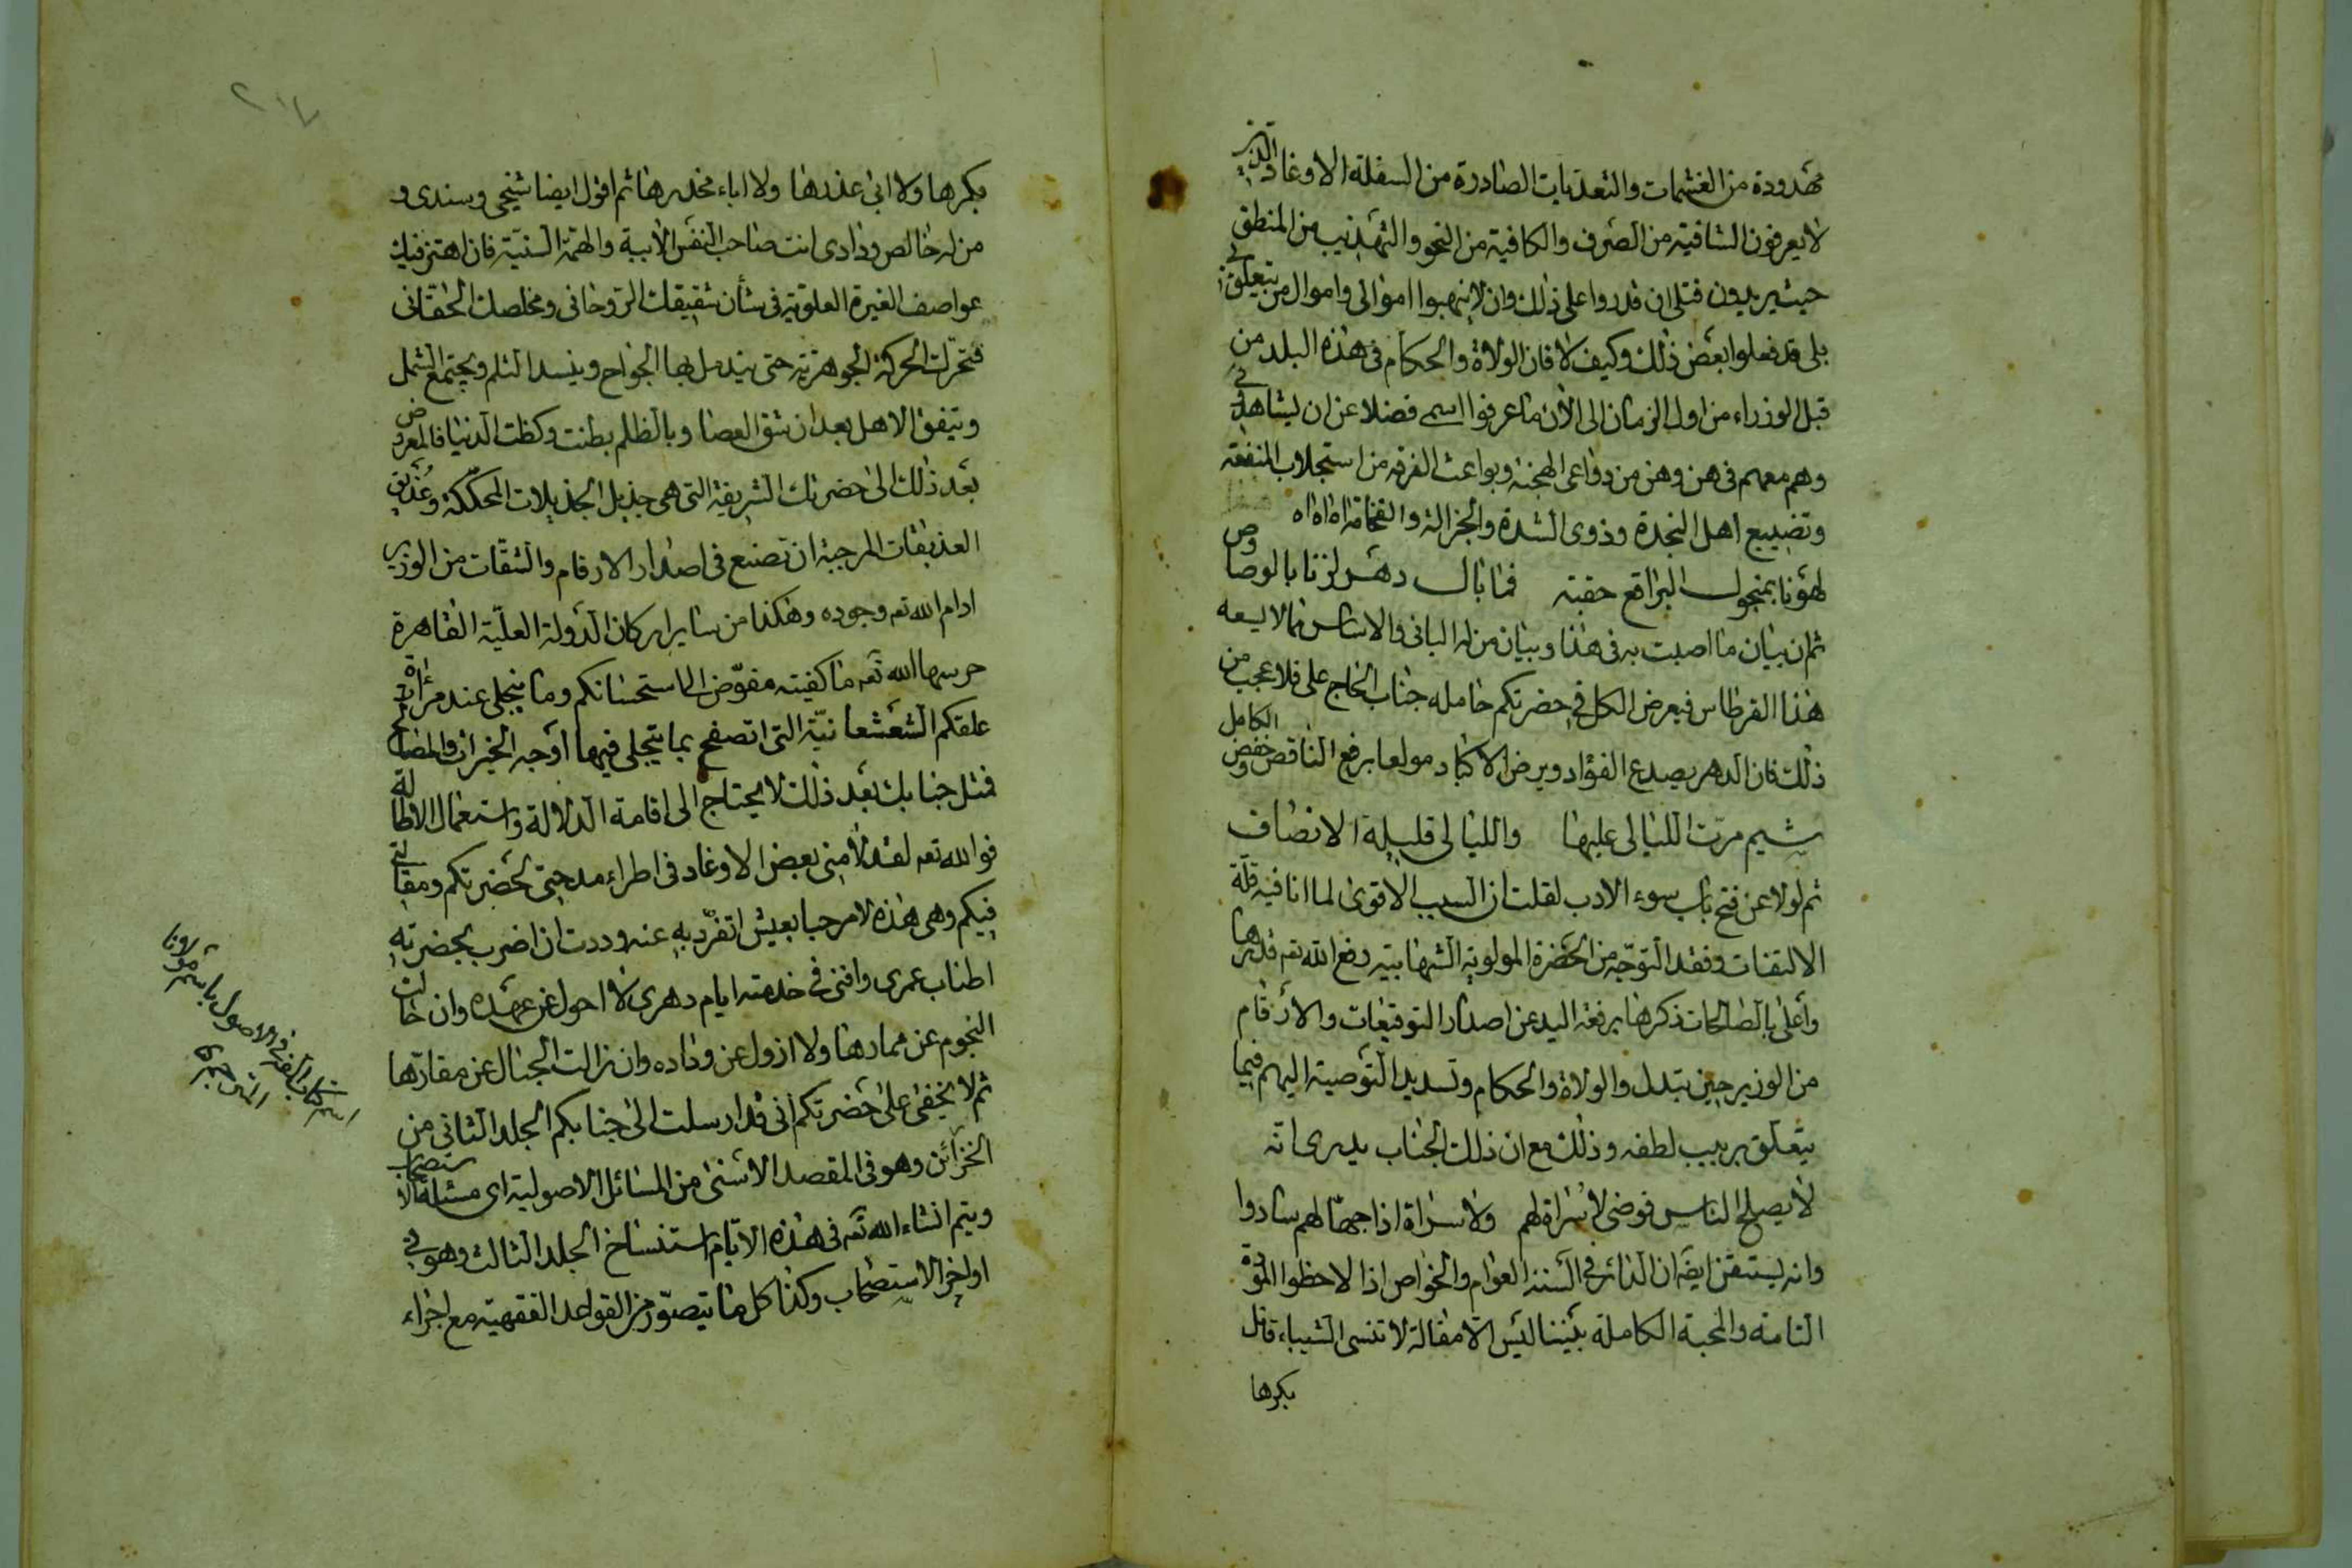 مهدودة من الغشمات والتعديات الصادرة من السفلة الاوغاد الذين
لا يعرفون الشافية من الصرف والكافية من النحو والتهذيب من المنطق
حيث يريدون قتلى ان قدروا على ذلك وان لا ينهبوا اموالى واموال من يتعلق بى
بلى قد فعلوا بعض ذلك وكيف لا فان الولاة والحكام فى هذه البلد من
قبل الوزراء من اول الزمان الى الان ما عرفوا اسمى فضلا عن ان يشاهدنى
وهم معهم فى هن وهن من دواعى الهجنة وبواعث الفرقة من استجلاب المنفعة
وتضييع اهل النجدة وذوى الشدة والجزالة والفخامة اه اه اه
لهونا بمنجول البراقع حقبة فما بال دهر لزنا بالوصاوص
ثم ان بيان ما اصبت به فى هذا وبيان من له البانى والاساس مما لا يسعه
هذا القرطاس فيعرض الكل فى حضرتكم حامله جناب الحاج على فلا عجب من
ذلك فان الدهر يصدع الفؤاد ويرض الاكباد مولعا برفع الناقص وخفض الكامل
شيم مرت الليالى عليها والليالى قليلة الانصاف
ثم لولا عن فتح باب سوء الادب لقلت ان السبب الاقوى لما انا فيه قلة
الالتفات وفقد التوجه من الحضرة المولوية الشهابية رفع الله تعه قدرها
وأعلى بالصالحات ذكرها برفعة اليد عن اصدار التوقيعات والارقام
من الوزير حين تبدل والولاة والحكام وتسديد التوصية اليهم فيما
يتعلق بربيب لطفه وذلك مع ان ذلك الجناب يدرى انه
لا يصلح الناس فوضى لا سراة لهم ولا سراة اذا جهالهم سادوا
وانه يستيقن ايضا ان الدائر فى السنة العوام والخواص اذا لاحظوا المودة
التامة والمحبة الكاملة بيننا ليس الا مقالة لا تنسى الشيباء قاتل
بكرها
٢١٧
بكرها ولا ابى عذرها ولا اباء مخدرها ثم اقول ايضا شيخى وسندى و
من له خالص ودادى انت صاحب النفس الابية والهمة السنية فان اهتز فيك
عواصف الغيرة العلوية فى شأن شقيقك الروحانى ومخلصك الحقانى
فتحرك الحركة الجوهرية حتى يندمل بها الجراح وينسد الثلم ويجتمع الشمل
ويتفق الاهل بعد ان شق العصا وبالظلم بطنت وكظت الدنيا فالمعروض
بعد ذلك الى حضرتك الشريفة التى هى جذيل الجذيلات المحككة وعذيق
العذيقات المرجبة ان تصنع فى اصدار الارقام والثقات من الوزير
ادام الله تعه وجوده وهكذا من ساير اركان الدولة العلية القاهرة
حرسها الله تعه ما كفيته مفوض الى استحسانكم وما ينجلى عند مرآة
علقكم الشعشعانية التى اتصفح بما يتجلى فيها أوجه الخيرات والمصالح
فمثل جنابك بعد ذلك لا يحتاج الى اقامة الدلالة واستعمال الاطالة
فوالله تعه لقد لامنى بعض الاوغاد فى اطراء مدحتى لحضرتكم ومقالتى
فيكم وهى هذه لا مرحبا بعيش اتفرد به عنه وددت ان اضرب بحضرته
اطناب عمرى وافنى فى خدمته ايام دهرى لا احول عن عهده وان خالت
النجوم عن ممارها ولا ازول عن وداده وان زالت الجبال عن مقارها
ثم لا يخفى على حضرتكم انى قد ارسلت الى جنابكم الجلد الثانى من
الخزائن وهو فى المقصد الاسنى من المسائل الاصولية اى مسئلة الاستصحاب
ويتم انشاء الله تعه فى هذه الايام استنساخ الجلد الثالث وهو فى
اواخر الاستصحاب وكذا كل ما يتصور من القواعد الفقهية مع اجزاء